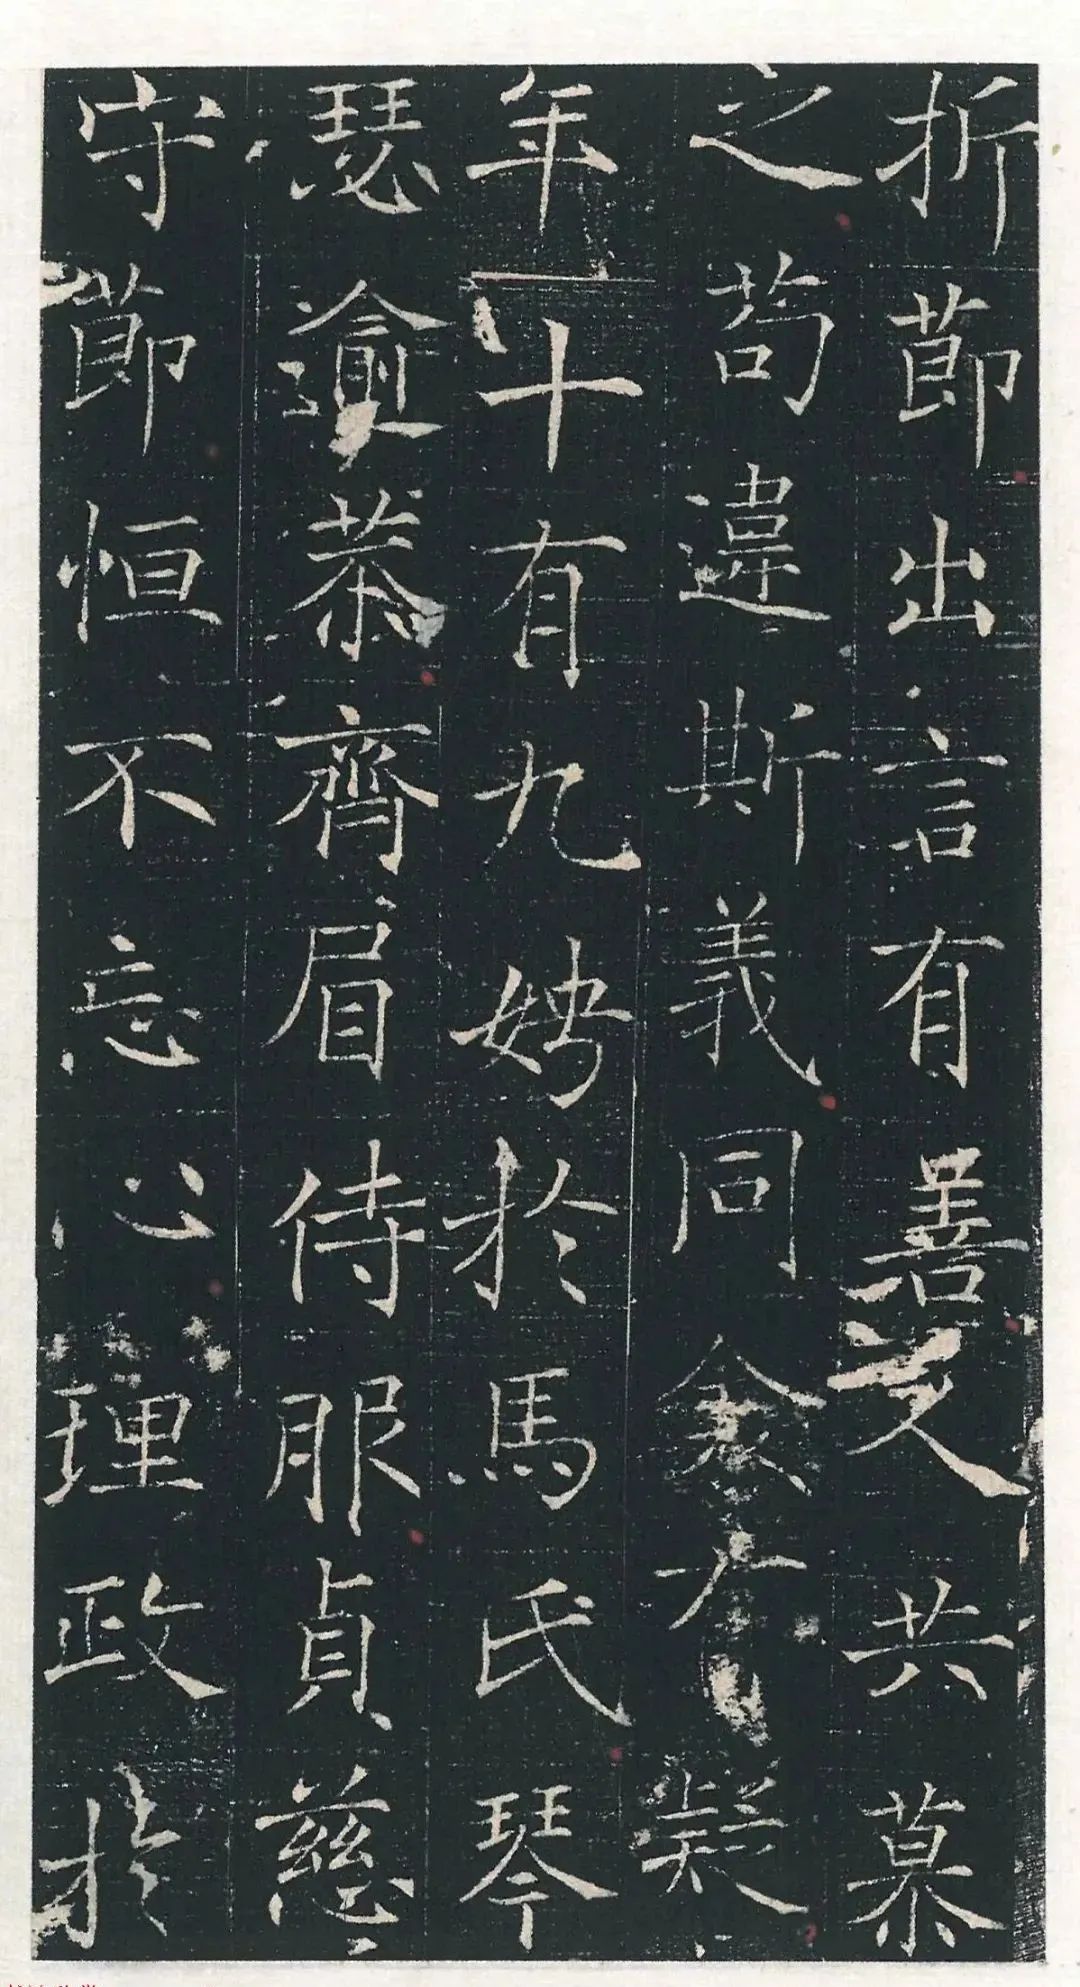 折節出言有善人共慕
之苟違斯義同衾有疑
年十有九娉於馬氏琴
瑟逾恭齊眉侍服貞慈
守節恒不忘心理政於